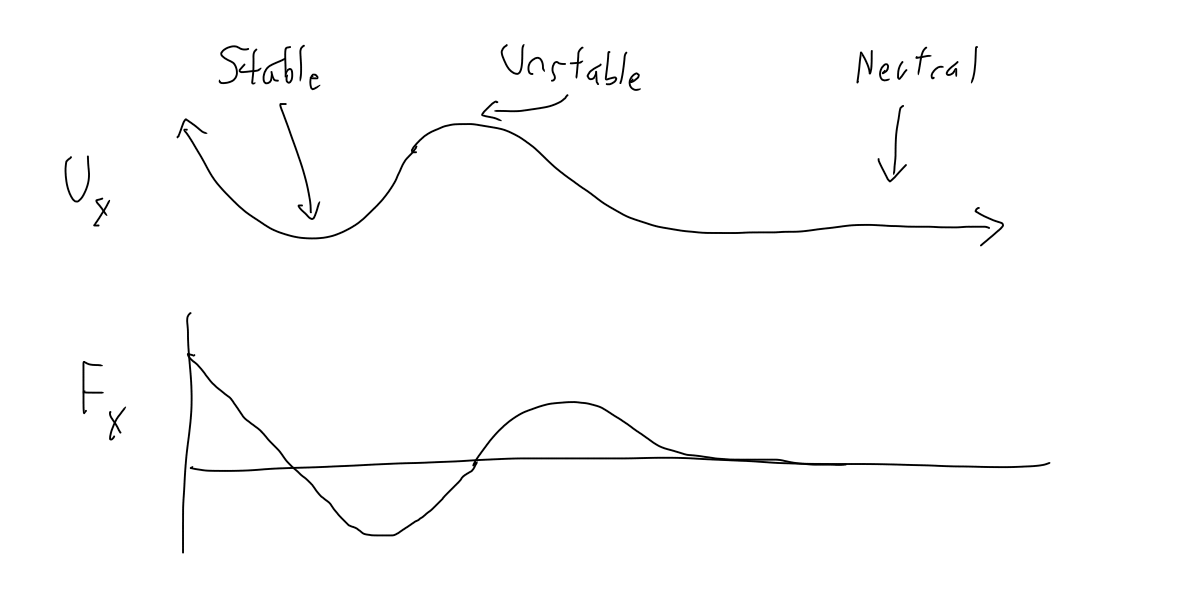 Stable Unstable Neutral
U_x
F_x